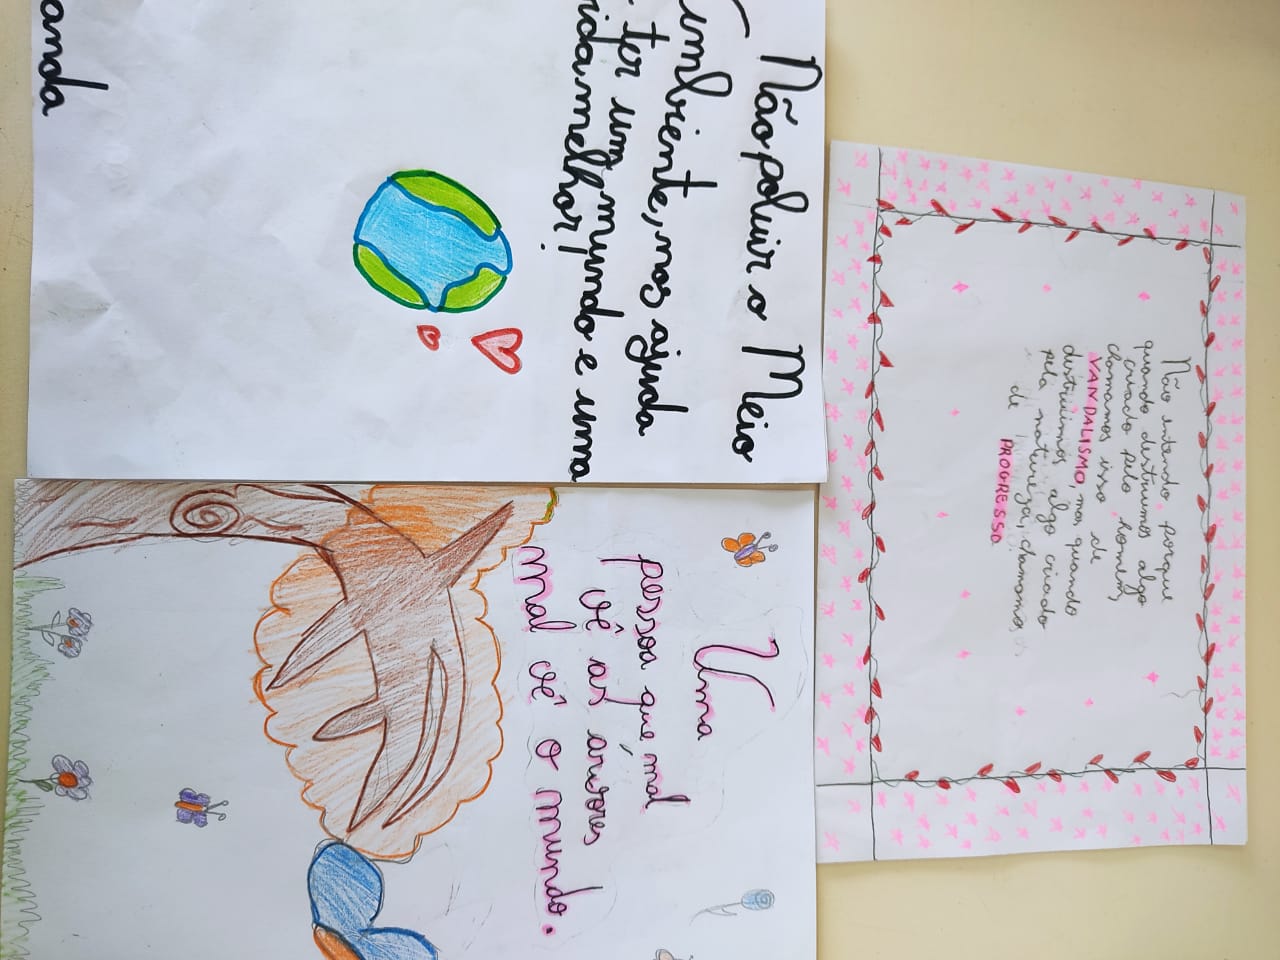 Não entendo porque
quando destruimos algo
criado pelo homem,
chamamos isso de
VANDALISMO, mas quando
destruimos algo criado
pela natureza, chamamos
de PROGRESSO
Não poluir o Meio
Ambiente, nos ajuda
ter um mundo e uma
vida melhor!
anda
Uma
pessoa que mal
vê as árvores
mal vê o mundo.